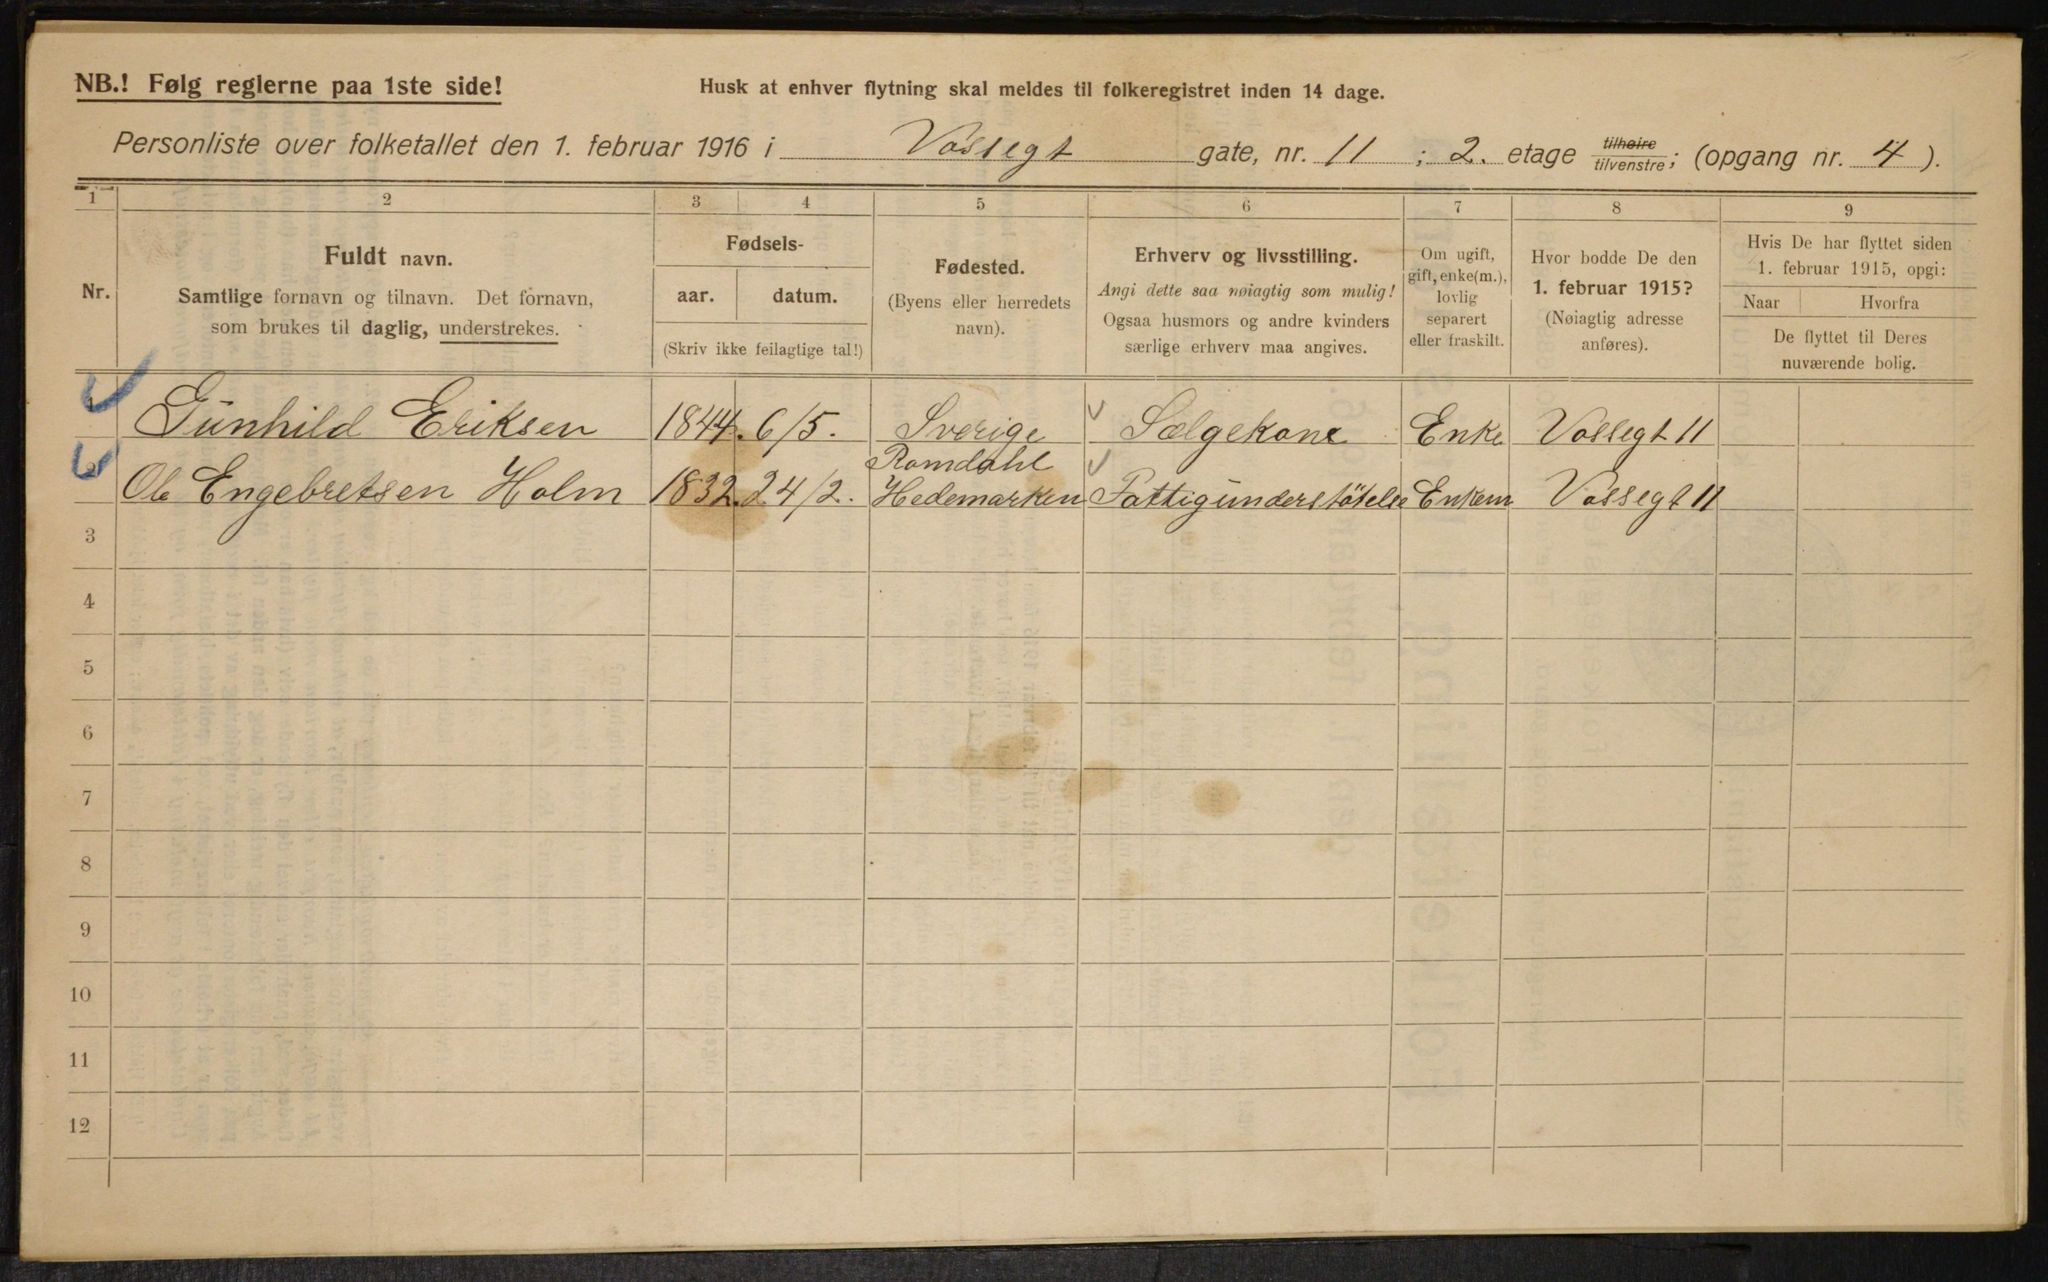 NB.! Følg reglerne paa 1ste side!
Husk at enhver flytning skal meldes til folkeregistret inden 14 dage.
Personliste over folketallet den 1. februar 1916 i Vossegt gate, nr. 11 ; 2. etage tilhøire/tilvenstre; (opgang nr. 4).
1 2 3 4 5 6 7 8 9
Nr.
Fuldt navn.
Samtlige fornavn og tilnavn. Det fornavn,
som brukes til daglig, understrekes.
Fødsels-
aar. datum.
(Skriv ikke feilagtige tal!)
Fødested.
(Byens eller herredets
navn).
Erhverv og livsstilling.
Angi dette saa nøiagtig som mulig!
Ogsaa husmors og andre kvinders
særlige erhverv maa angives.
Om ugift,
gift, enke(m.),
lovlig
separert
eller fraskilt.
Hvor bodde De den
1. februar 1915?
(Nøiagtig adresse
anføres).
Hvis De har flyttet siden
1. februar 1915, opgi:
Naar Hvorfra
De flyttet til Deres
nuværende bolig.
1 Gunhild Eriksen 1844. 6/5. Sverige Sælgekone Enke Vossegt 11
Romdahl
2 Ole Engebretsen Holm 1832. 24/2. Hedemarken Fattigunderstötelse Enkem Vossegt 11
3
4
5
6
7
8
9
10
11
12